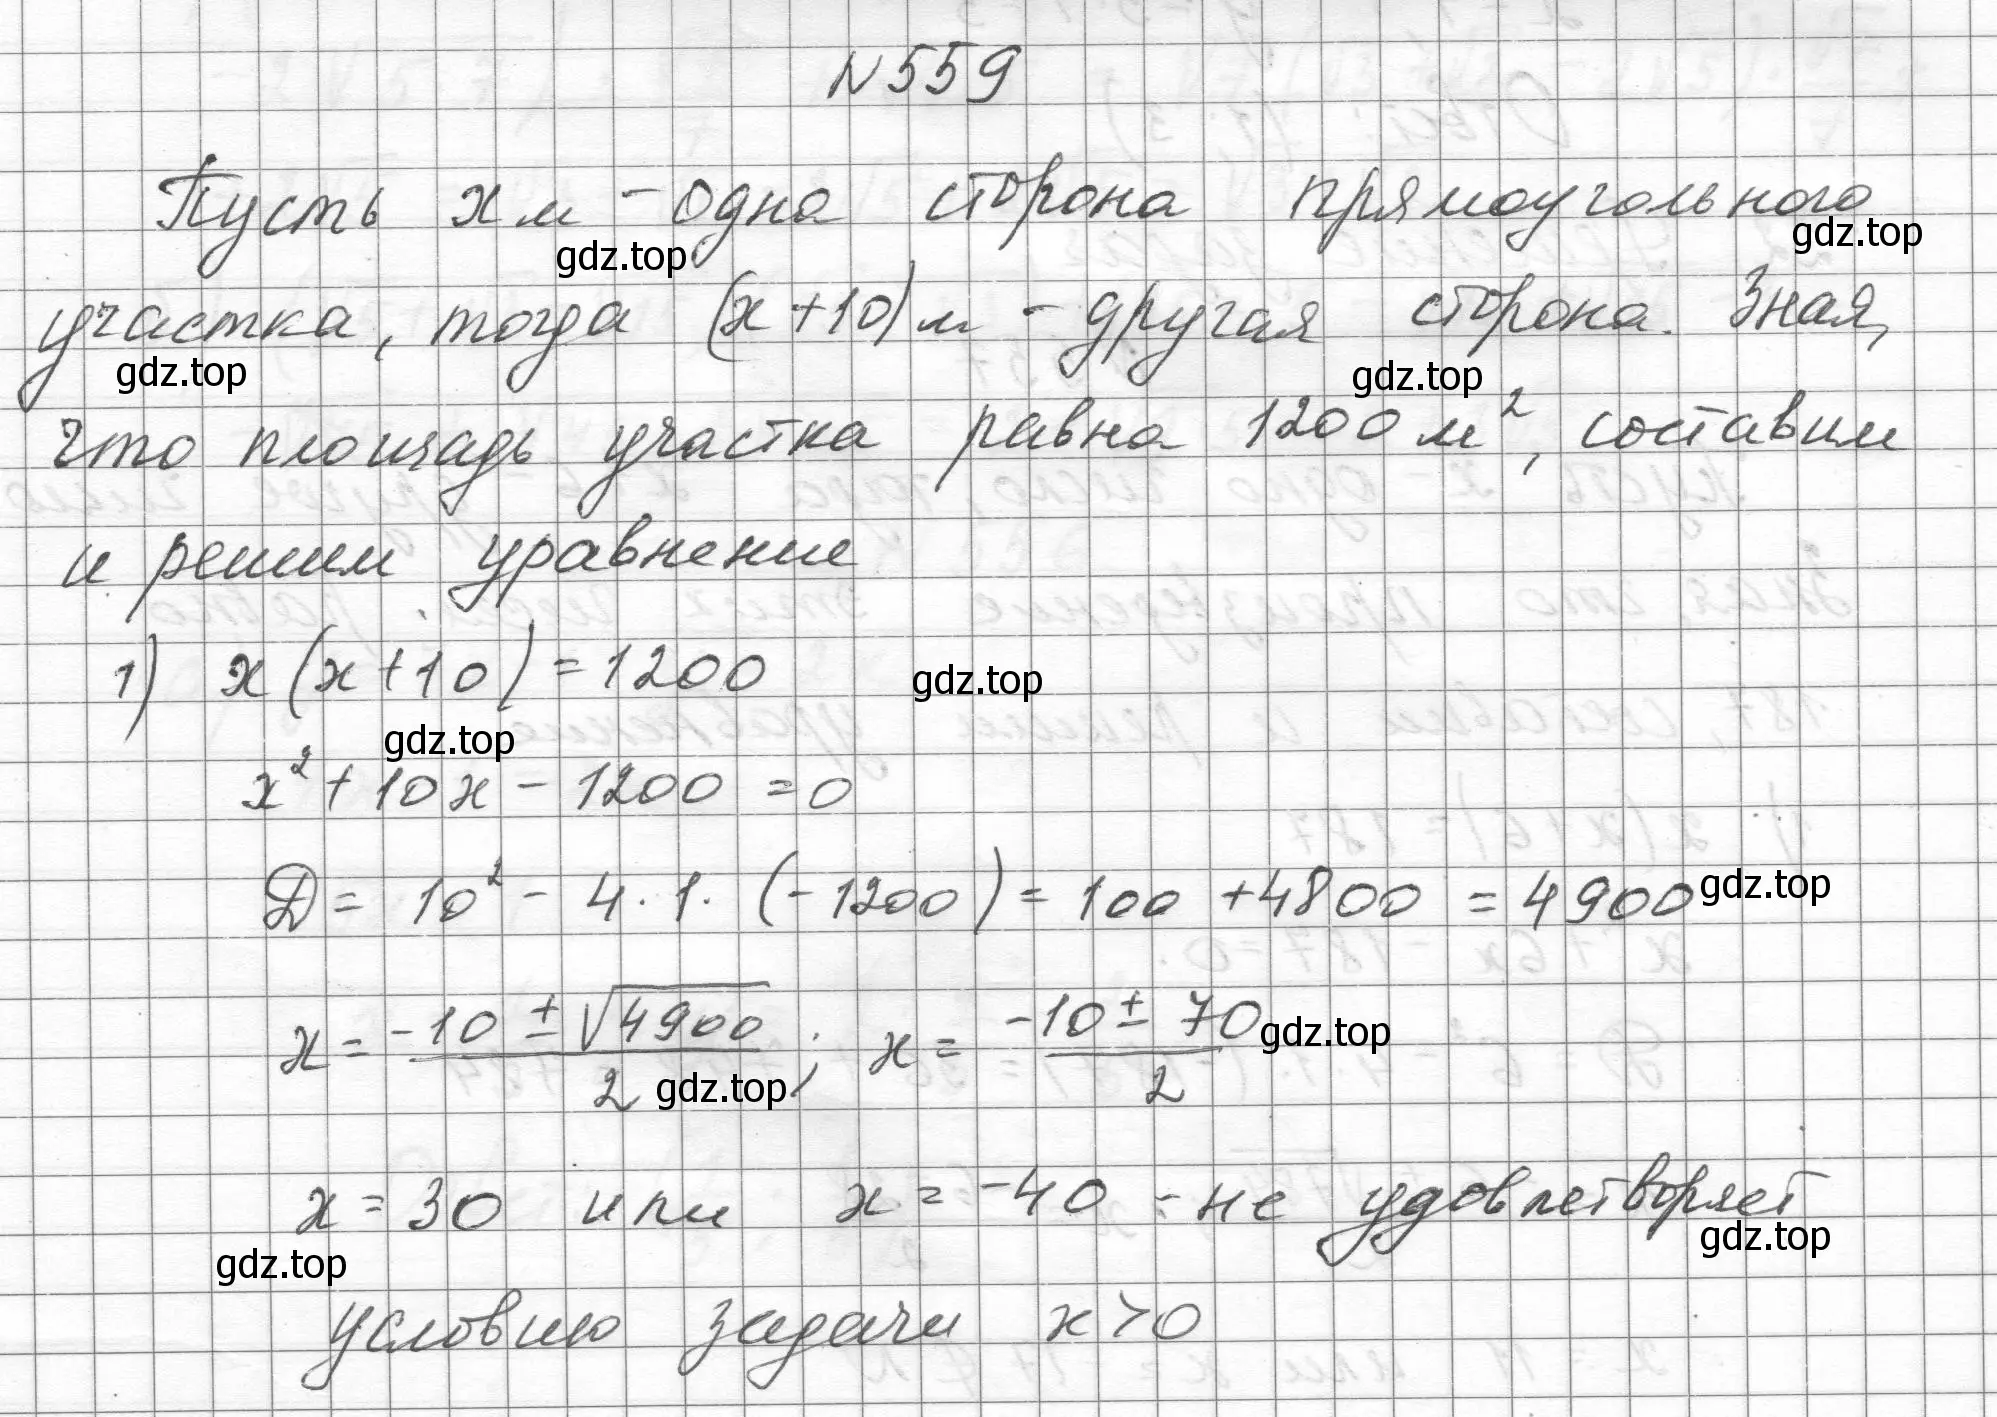 N 559
Пусть x м - одна сторона прямоугольного
gdz.top gdz.top
участка, тогда (x+10) м - другая сторона. Зная,
gdz.top gdz.top
что площадь участка равна 1200 м², составим
и решим уравнение
1) x(x+10) = 1200 gdz.top
gdz.top
x² + 10x - 1200 = 0
D = 10² - 4 · 1 · (-1200) = 100 + 4800 = 4900 gdz.top
x = (-10 ± √4900)/2 ; x = (-10 ± 70)/2 gdz.top
gdz.top
x = 30 или x = -40 - не удовлетворяет
gdz.top gdz.top
условию задачи x > 0